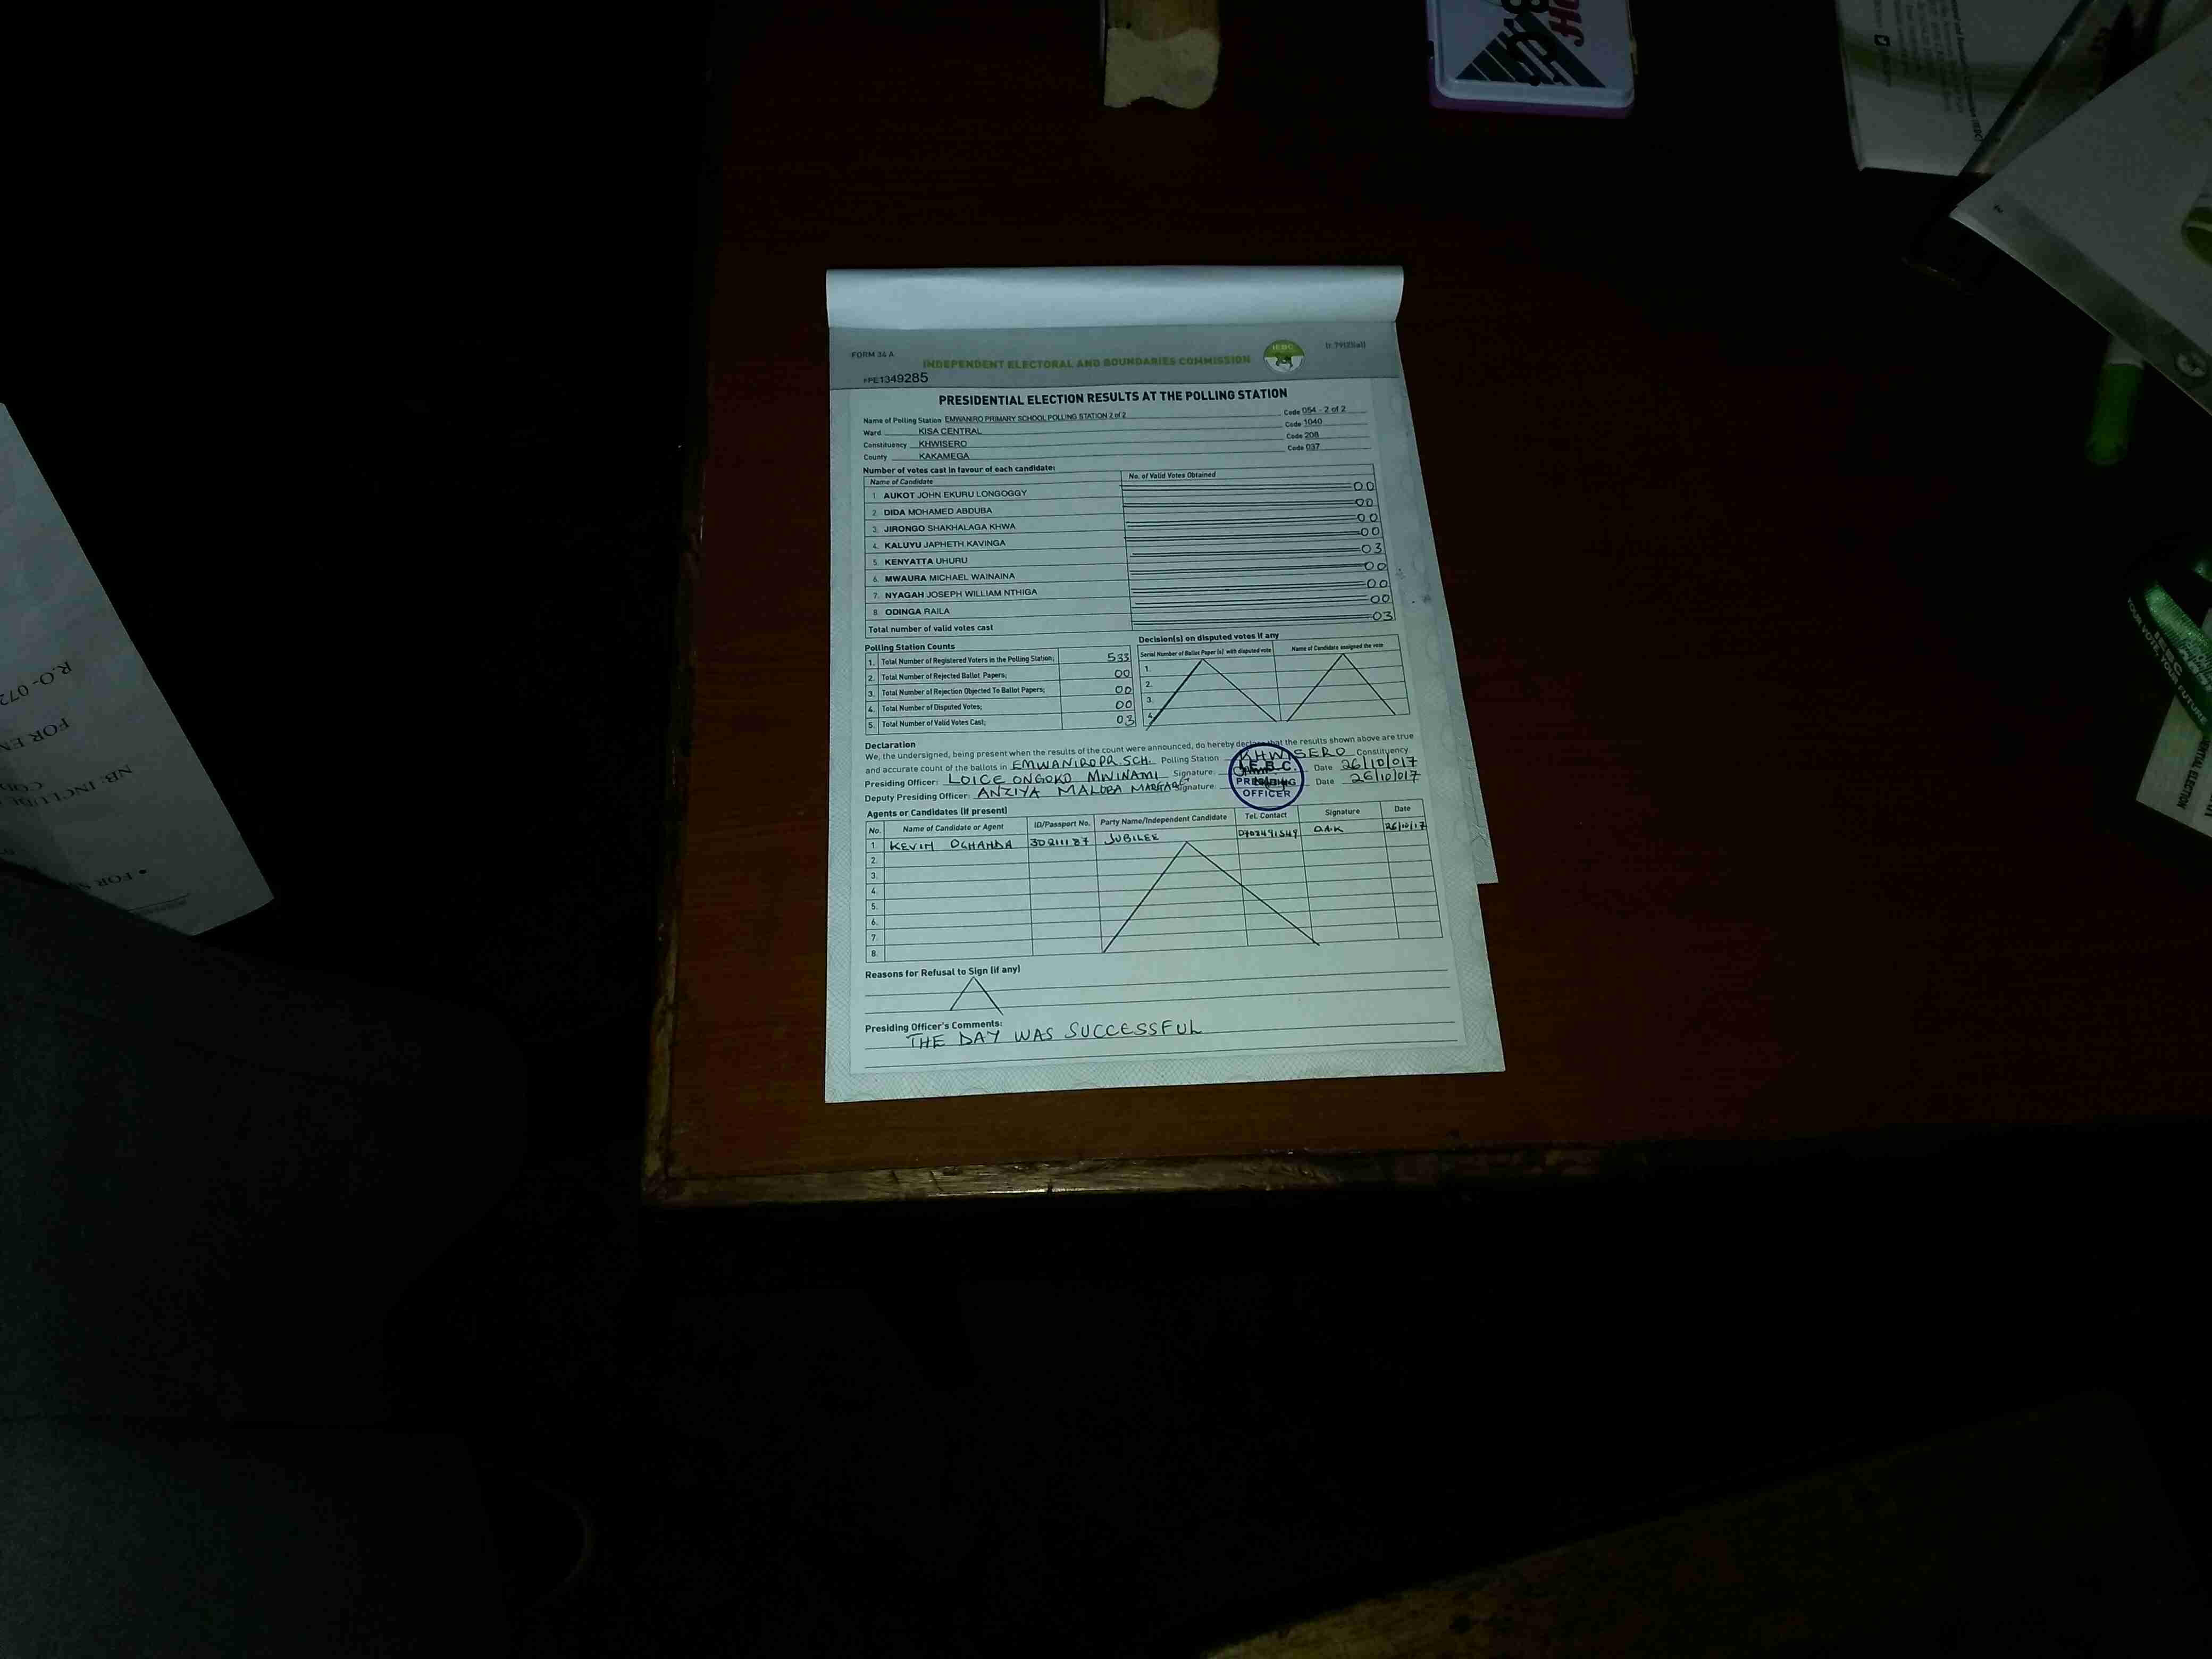 FORM 34 A
INDEPENDENT ELECTORAL AND BOUNDARIES COMMISSION
IEBC
PE1349285
PRESIDENTIAL ELECTION RESULTS AT THE POLLING STATION
Name of Polling Station EMWANIRO PRIMARY SCHOOL POLLING STATION 2 of 2 Code 054 - 2 of 2
Ward KISA CENTRAL Code 1040
Constituency KHWISERO Code 208
County KAKAMEGA Code 037
Number of votes cast in favour of each candidate:
Name of Candidate No. of Valid Votes Obtained
1. AUKOT JOHN EKURU LONGOGGY 00
2. DIDA MOHAMED ABDUBA 00
3. JIRONGO SHAKHALAGA KHWA 00
4. KALUYU JAPHETH KAVINGA 00
5. KENYATTA UHURU 03
6. MWAURA MICHAEL WAINAINA 00
7. NYAGAH JOSEPH WILLIAM NTHIGA 00
8. ODINGA RAILA 00
Total number of valid votes cast 03
Polling Station Counts
1. Total Number of Registered Voters in the Polling Station; 533
2. Total Number of Rejected Ballot Papers; 00
3. Total Number of Rejection Objected To Ballot Papers; 00
4. Total Number of Disputed Votes; 00
5. Total Number of Valid Votes Cast; 03
Decision(s) on disputed votes if any
Serial Number of Ballot Paper (s) with disputed vote Name of Candidate assigned the vote
1.
2.
3.
4.
Declaration
We, the undersigned, being present when the results of the count were announced, do hereby declare that the results shown above are true
and accurate count of the ballots in EMWANIRO PR. SCH. Polling Station KHWISERO Constituency
Presiding Officer: LOICE ONGOKO MWINAMI Signature: Date 26/10/017
Deputy Presiding Officer: ANZIYA MALOBA Signature: Date 26/10/017
I.E.B.C.
PRESIDING
OFFICER
Agents or Candidates (if present)
No. Name of Candidate or Agent ID/Passport No. Party Name/Independent Candidate Tel. Contact Signature Date
1 KEVIN OCHANDA JUBILEE 26/10/17
2.
3.
4.
5.
6.
7
8.
Reasons for Refusal to Sign (if any)
Presiding Officer's Comments:
THE DAY WAS SUCCESSFUL
R.O-072
NB: INCLUDE
YOUR VOTE, YOUR FUTURE
IEBC